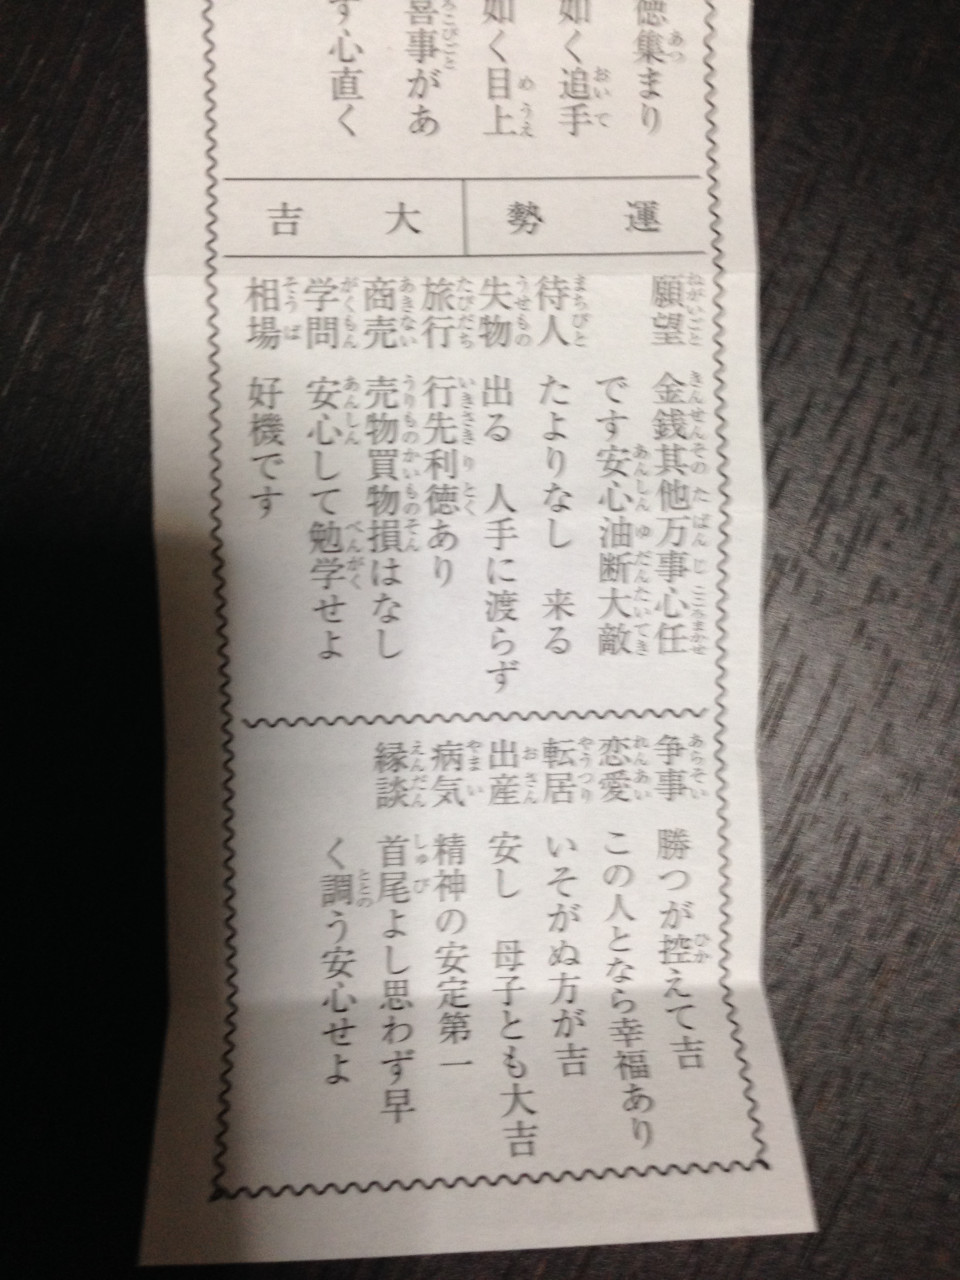 徳集まり
如く追手
如く目上
喜事があ
ず心直く
運勢 大吉
願望 金銭其他万事心任
です安心油断大敵
待人 たよりなし 来る
失物 出る 人手に渡らず
旅行 行先利徳あり
商売 売物買物損はなし
学問 安心して勉学せよ
相場 好機です
争事 勝つが控えて吉
恋愛 この人となら幸福あり
転居 いそがぬ方が吉
出産 安し 母子とも大吉
病気 精神の安定第一
縁談 首尾よし思わず早
く調う安心せよ